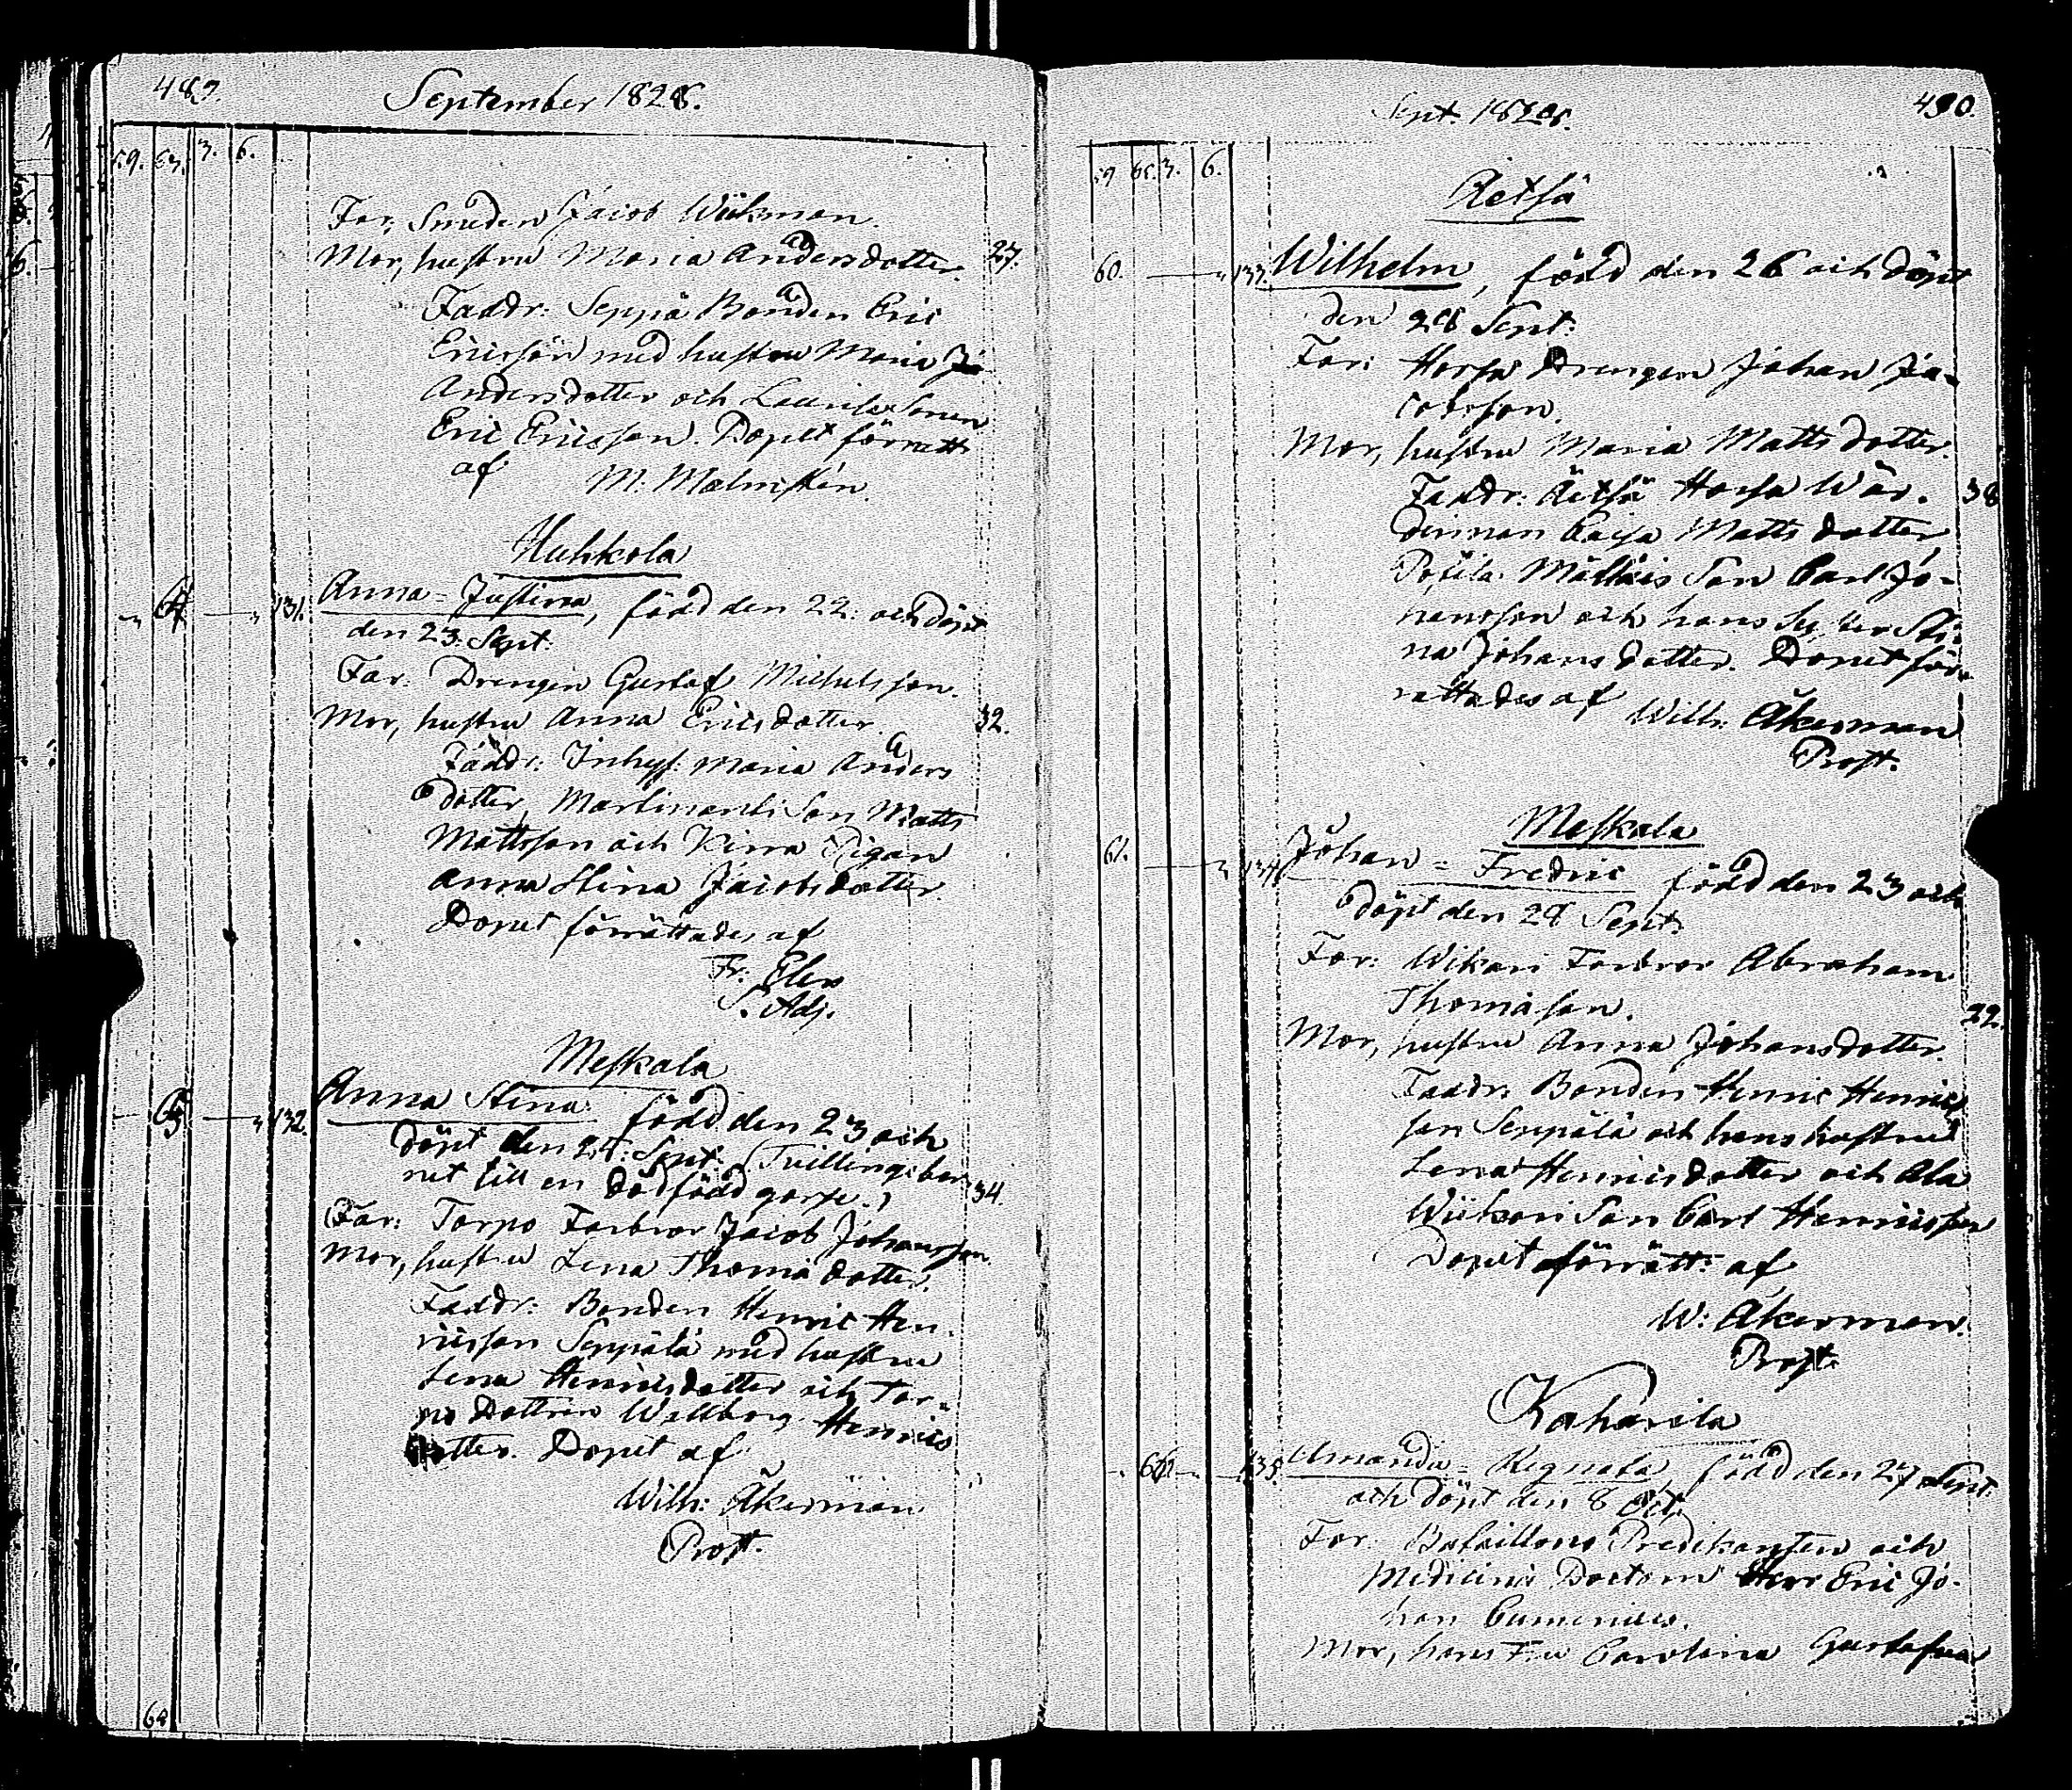 489.
September 1828.
59. 63. 3. 6.
Far: Smeden Jacob Wikman.
Mor, hustru Maria Andersdotter 27.
Faddr: Seppä Bonden Eric
Ericsson med hustru Maria
Andersdotter och Laurila Sonen
Eric Ericsson. Dopet förrätt:
af M. Malmstén.
Huhkola
131. Anna-Justina, född den 22. och döpt
den 23. Sept:
Far: Drengen Gustaf Michelsson.
Mor, hustru Anna Ericsdotter. 32.
Faddr: Inhys: Maria Anders
dotter, Son Matts
Mattsson och Pigan
Anna Stina Jacobsdotter.
Dopet förrättades af
Fr: Elers
S. Adj.
Meskala
132. Anna Stina född den 23 och
döpt den Sept: (Tvillingsbar
net till en dödfödd gosse.) 34.
Far: Torpo Farbror Jacob Johansson.
Mor, hustru Lena Thomædotter.
Faddr: Bonden Henric Hen-
ricsson Seppälä med hustru
Lena Henricsdotter och Tor-
po Dottren Wallborg Henrics
dotter. Dopet af
Wilh: Åkerman
Prost.
Sept. 1828.
490.
59 65. 3. 6.
Aetsä
60. 133. Wilhelm, född den 26 och döpt
den 28 Sept:
Far: Horsa Drengen Johan Ja-
cobsson.
Mor, hustru Maria Mattsdotter.
Faddr: Äetsä Horsa Wär- 38
dinnan Caisa Mattsdotter
Son Carl Jo-
hansson och hans Syster Sti-
na Johansdotter. Dopet för-
rättades af Wilh: Åkerman
Prost.
Meskala
61. 134. Johan-Fredric född den 23 och
döpt den 28 Sept:
Far: Wikari Farbror Abraham
Thomasson. 22.
Mor, hustru Anna Johansdotter.
Faddr: Bonden Henric Henrics
son Seppälä och hans hustru
Lena Henricsdotter och Ala
Wikari Son Carl Henricsson
Dopet förrätt: af
W: Åkerman.
Prost.
Kaharila
62 135. Amanda-Regnata, född den 27 Sept:
och döpt den 8 Oct:
Far: Bataillons Predikanten och
Medicinæ Doctorn Herr Eric Jo-
han Cumenius.
Mor, hans Fru Carolina Gustafva